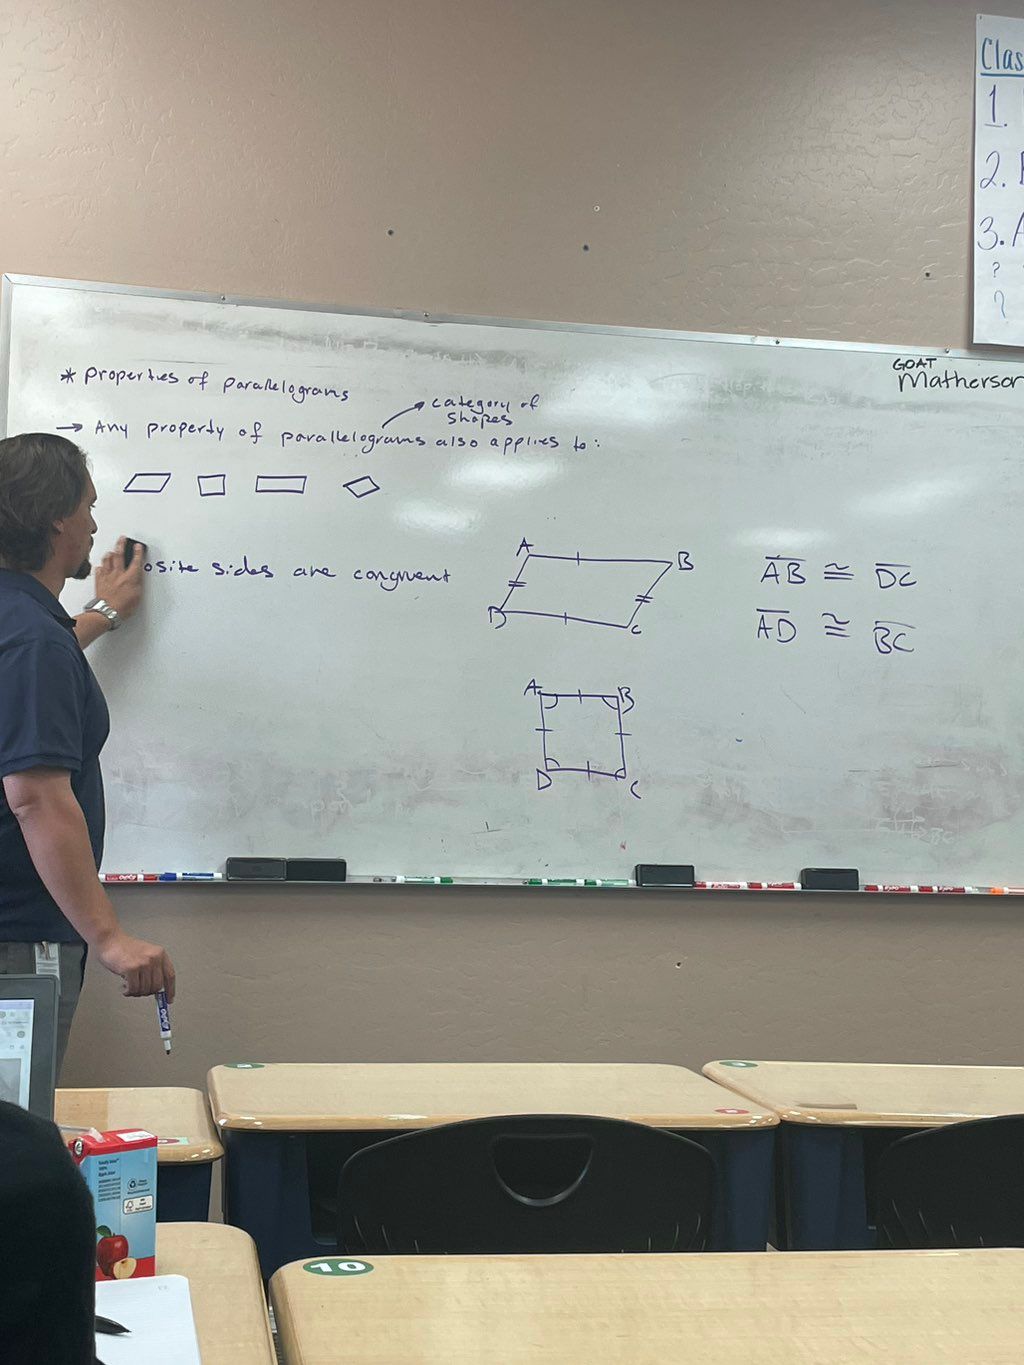 Clas
1.
2.
3. A
?
?
GOAT
Matherson
* Properties of parallelograms
category of
shapes
→ Any property of parallelograms also applies to:
osite sides are congruent
A B
D C
AB ≅ DC
AD ≅ BC
A B
D C
EXPO
10